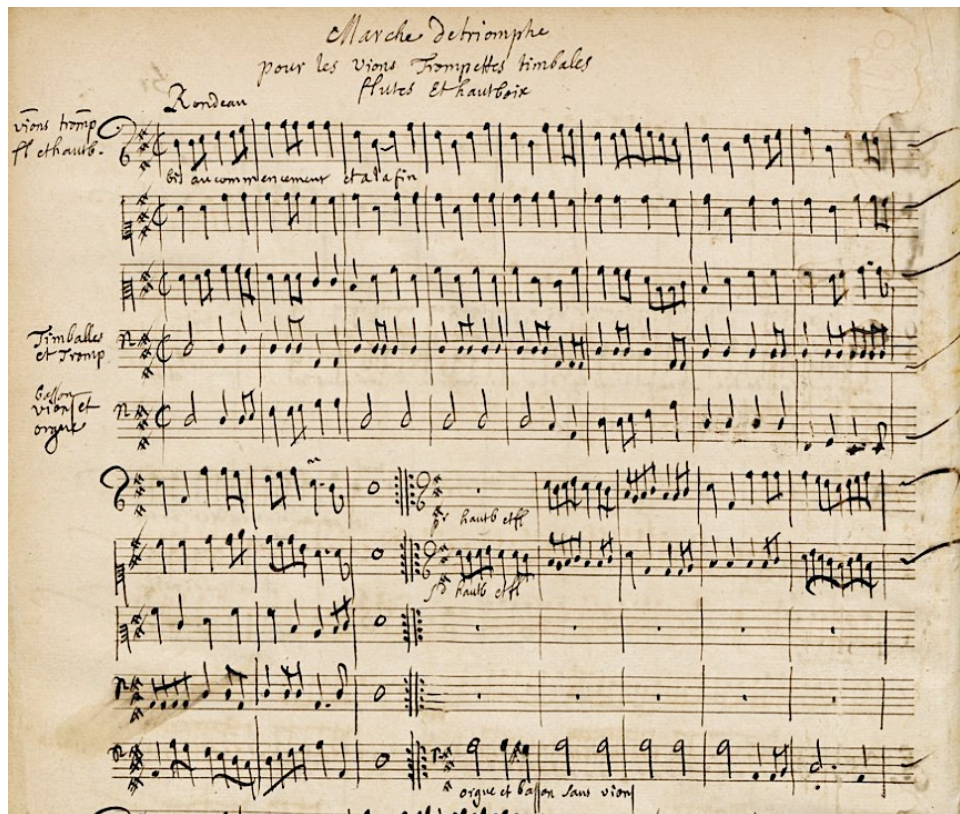 Marche de triomphe
pour les vions Trompettes timbales
flutes Et hautbois
Rondeau
vions tromp
fl et hautb.
bis au commencement et a la fin
Timballes
et Tromp
basson
vions et
orgue
pr hautb et fl
sd hautb et fl
orgue et basson sans vions